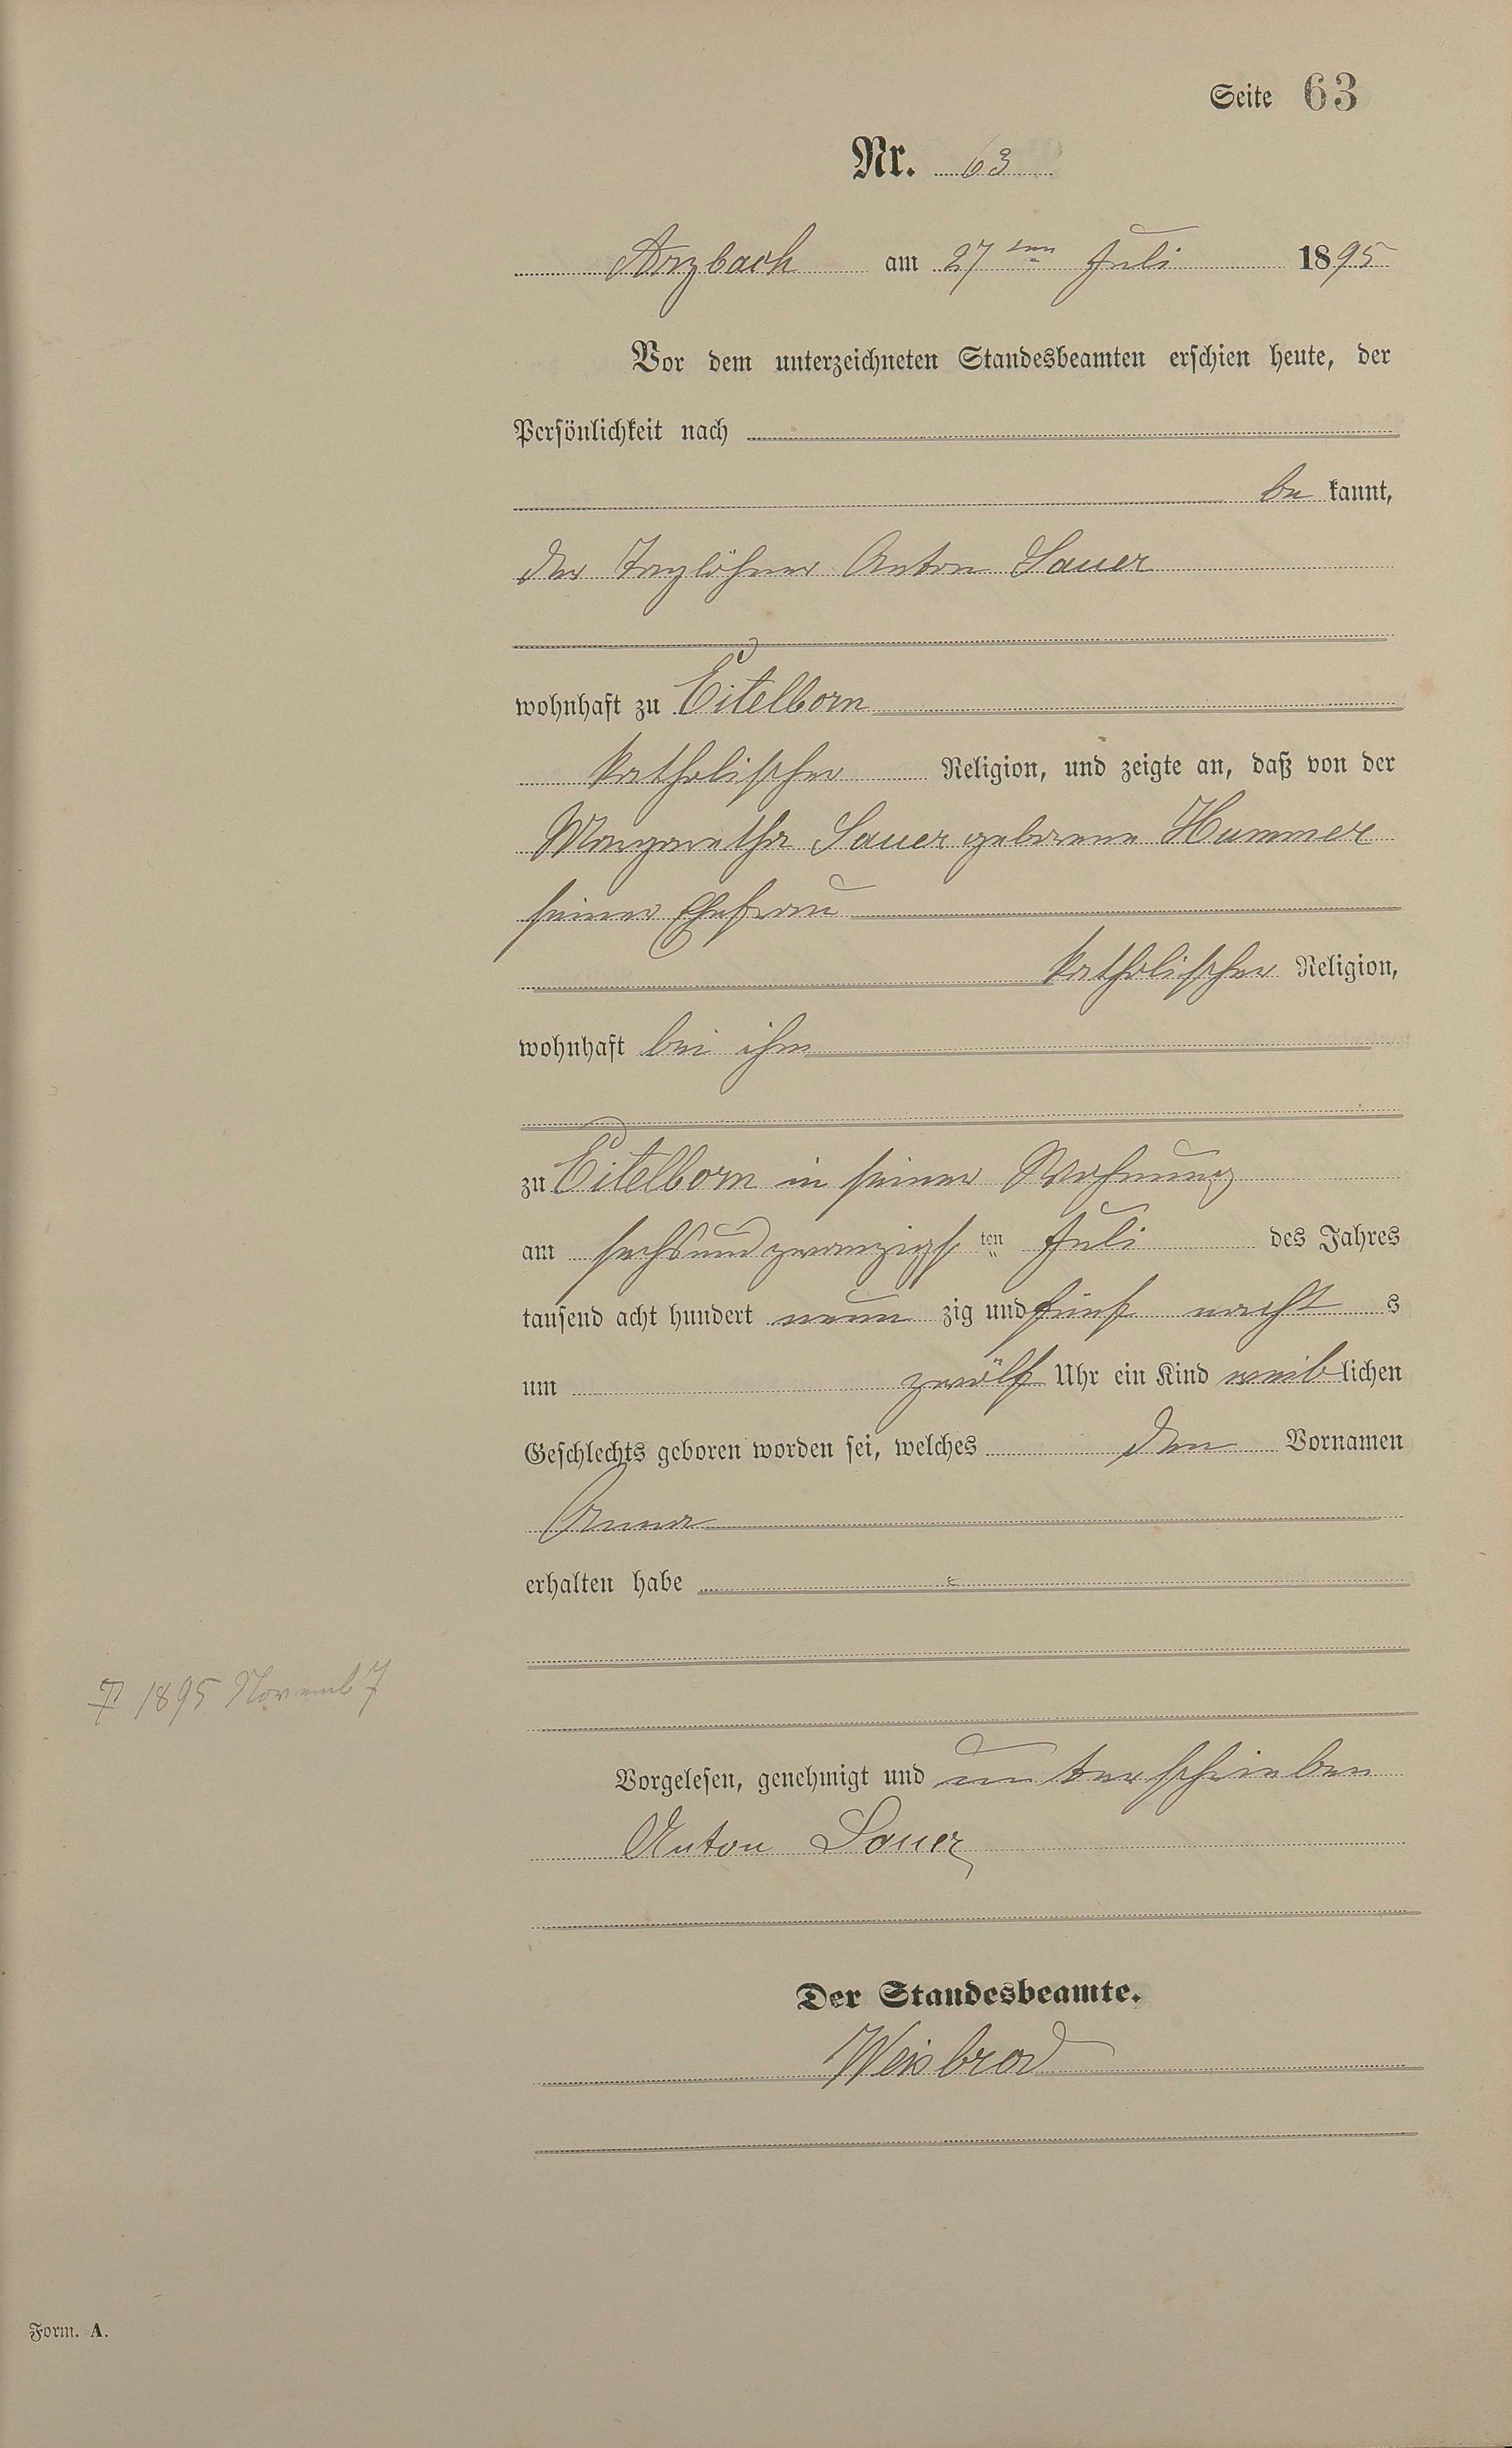 Seite 63
Nr. 63
Arzbach am 27ten Juli 1895
Vor dem unterzeichneten Standesbeamten erschien heute, der
Persönlichkeit nach
be kannt,
der Taglöhner Anton Sauer
wohnhaft zu Eitelborn
katholischer Religion, und zeigte an, daß von der
Margaretha Sauer geborene Hummer
seiner Ehefrau
katholischer Religion,
wohnhaft bei ihm
zu Eitelborn in seiner Wohnung
am sechsundzwanzigsten Juli des Jahres
tausend acht hundert neun zig und fünf nacht s
um zwölf Uhr ein Kind weiblichen
Geschlechts geboren worden sei, welches den Vornamen
Anna
erhalten habe
† 1895 Novemb 7
Vorgelesen, genehmigt und unterschrieben
Anton Sauer
Der Standesbeamte.
Weisbrod
Form. A.